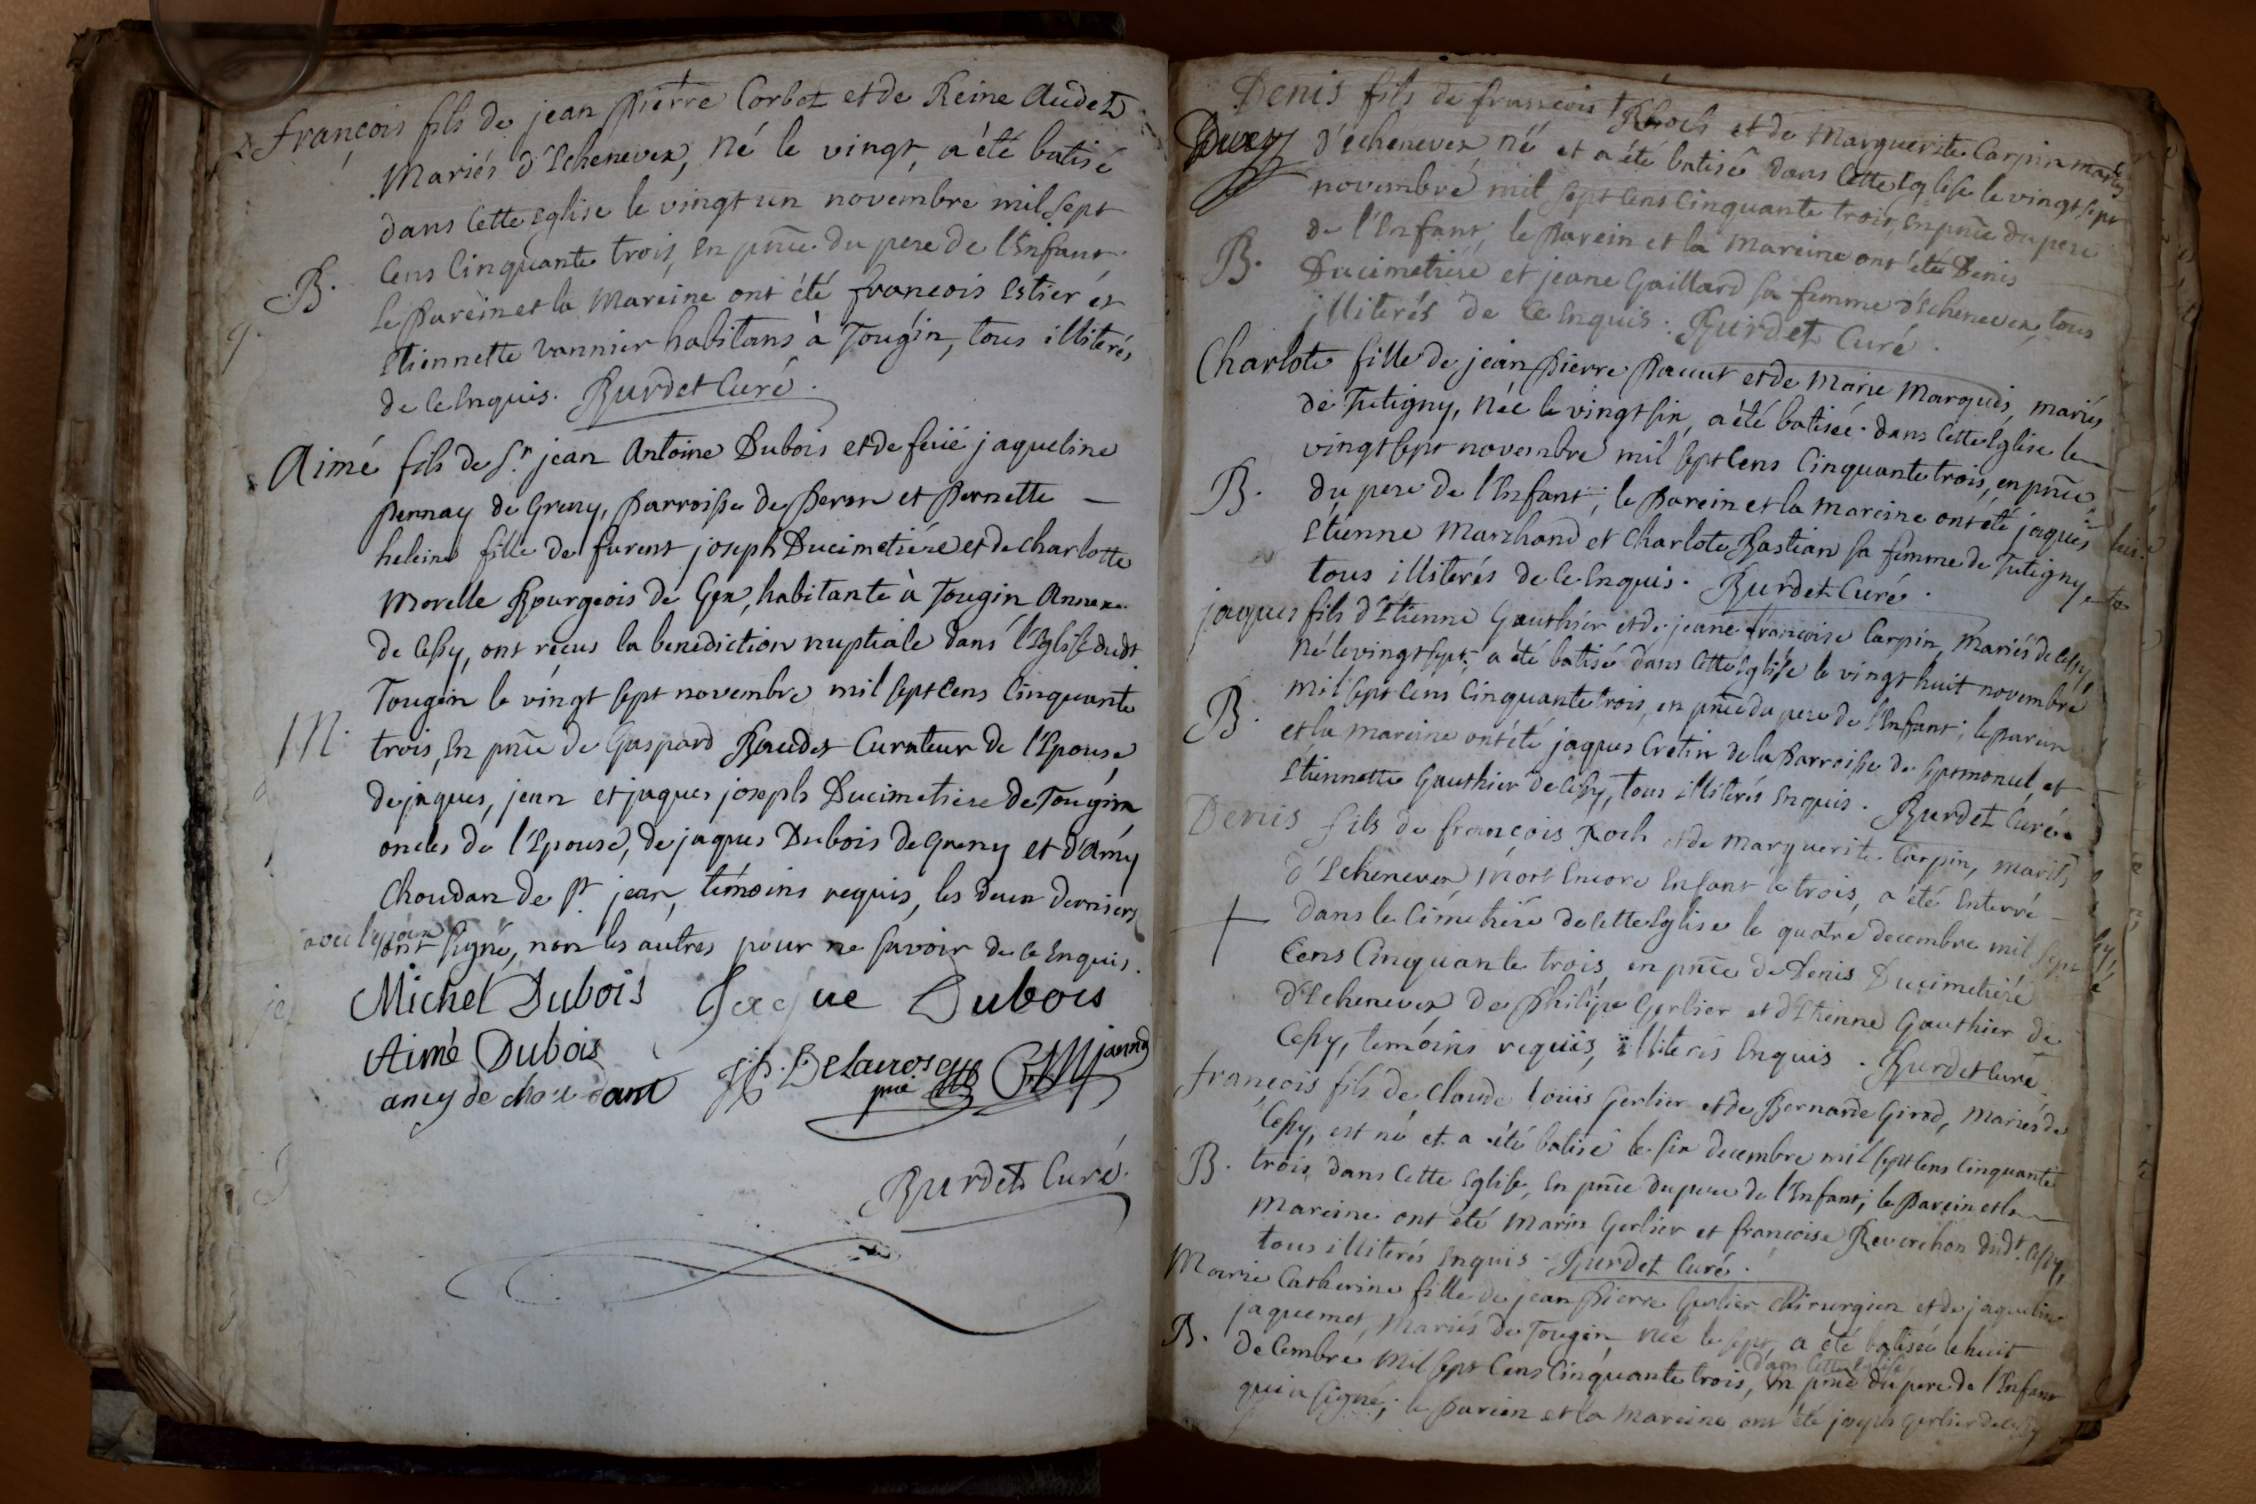 françois fils de jean pierre Corbet et de Reine Audet
Mariés d'Echenevex, Né le vingt, a été batisé
dans Cette Eglise le vingt un novembre mil sept
B. Cens Cinquante trois, En pñce du pere de l'Enfant
Le Parein et la Mareine ont été françois Estier et
Etiennette vannier habitans à Tougin, tous illiterés
de ce Enquis. Burdet Curé.
Aimé fils de Sr. jean Antoine Dubois et de feüe jaqueline
pernay de Greny, Parroisse de Peron et Pernette
heleine fille de furent joseph Ducimetiére et de charlotte
Morelle Bourgeois de Gex, habitante à Tougin Annexe
de Cessy, ont reçus la benediction nuptiale dans l'Eglise dudt.
Tougin le vingt sept novembre mil sept Cens Cinquante
M. trois, En pñce de Gaspard Baudet Curateur de l'Epouse
de jaques, jean et jaques joseph Ducimetiere de Tougin
oncles de l'Epouse, de jaques Dubois de Greny et d'Amy
Choudan de St jean, témoins requis, les deux derniers
ont signé, non les autres pour ne savoir de ce Enquis.
Michel Dubois Jaque Dubois
Aimé Dubois
amy de chou dant
Burdet Curé.
Denis fils de françois Rhoch et de Marguerite Carpin mariés
d'Echenevex, né et a été batisé dans Cette Eglise le vingt sept
novembre mil sept Cens Cinquante trois, En pñce du pere
de l'Enfant, le Parein et la Mareine ont été Denis
B. Ducimetiére et jeane Gaillard sa femme d'Echenevex, tous
illiterés de ce Enquis. Burdet Curé.
Charlote fille de jean Pierre Pacut et de Marie Marquis, mariés
de Tutigny, Née le vingt six, a été batisée dans Cette Eglise le
vingt sept novembre mil sept Cens Cinquante trois, en pñce
B. du pere de l'Enfant; le Parein et la Mareine ont été jaques
Etienne Marchand et Charlote Bastian sa femme de Tutigny
tous illiterés de ce Enquis. Burdet Curé.
jaques fils d'Etienne Gauthier et de jeane françoise Carpin, Mariés de Cessy,
Né le vingt sept, a été batisé dans Cette Eglise le vingt huit novembre
mil sept Cens Cinquante trois, en pñce du pere de l'Enfant; le parein
B. et la mareine ont été jaques Cretin de la Parroisse de Septmoncel, et
Etiennette Gauthier de Cessy, tous illiterés Enquis. Burdet Curé.
Denis fils de françois Roch et de Marguerite Carpin, mariés
d'Echenevex, mort Encore Enfant le trois, a été Enterré
dans le Cimetiére de Cette Eglise le quatre decembre mil sept
Cens Cinquante trois, en pñce de Denis Ducimetiére
d'Echenevex, de Philipe Gerlier et d'Etienne Gauthier de
Cessy, temoins requis, illiterés Enquis. Burdet Curé
françois fils de Claude Louis Gerlier et de Bernarde Girod, Mariés de
Cessy, est né et a été batisé le six decembre mil sept Cens Cinquante
B. trois, dans Cette Eglise, En pñce du pere de l'Enfant; le Parein et la
Mareine ont été Marin Gerlier et françoise Reverchon dudt. Cessy,
tous illiterés Enquis. Burdet Curé.
Marie Catherine fille de jean Pierre Gerlier Chirurgien et de jaqueline
jaquemet, Mariés de Tougin, Née le sept, a été batisée le huit
dans Cette Eglise
B. decembre Mil sept Cens Cinquante trois, En pñce du pere de l'Enfant
qui a signé; le Parein et la Mareine ont été joseph Gerlier de Cessy